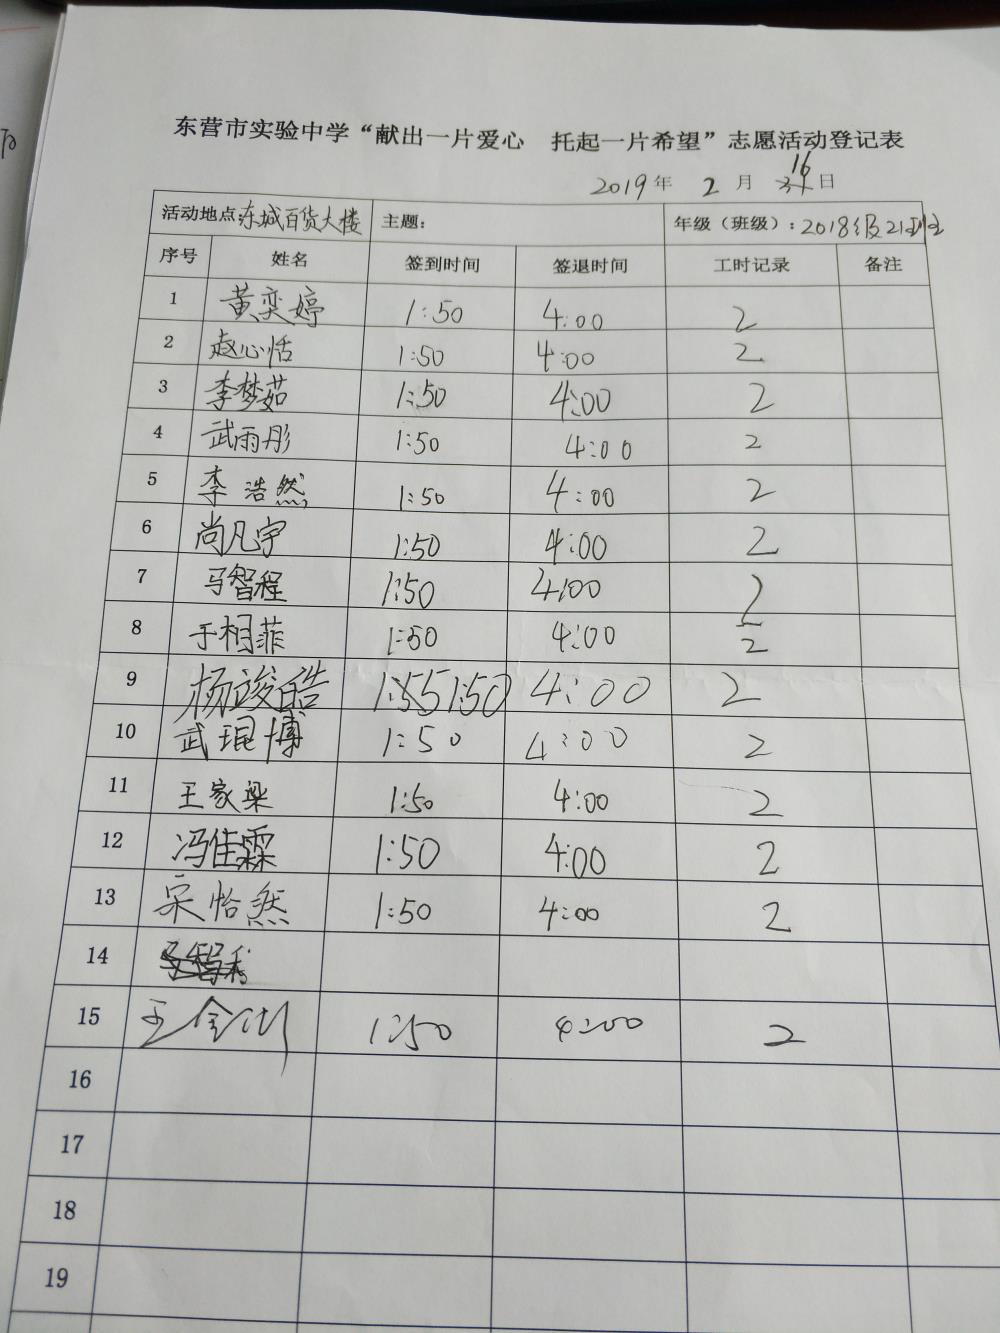 东营市实验中学“献出一片爱心 托起一片希望”志愿活动登记表
2019年 2月 16日
活动地点:东城百货大楼 主题: 年级（班级）:2018级21班
序号 姓名 签到时间 签退时间 工时记录 备注
1 黄奕婷 1:50 4:00 2
2 赵心恬 1:50 4:00 2
3 李梦茹 1:50 4:00 2
4 武雨彤 1:50 4:00 2
5 李浩然 1:50 4:00 2
6 尚凡宇 1:50 4:00 2
7 马智程 1:50 4:00 2
8 于相菲 1:50 4:00 2
9 杨竣皓 1:55 1:50 4:00 2
10 武琨博 1:50 4:00 2
11 王家梁 1:50 4:00 2
12 冯佳霖 1:50 4:00 2
13 宋怡然 1:50 4:00 2
14
15 王金 1:50 4:00 2
16
17
18
19